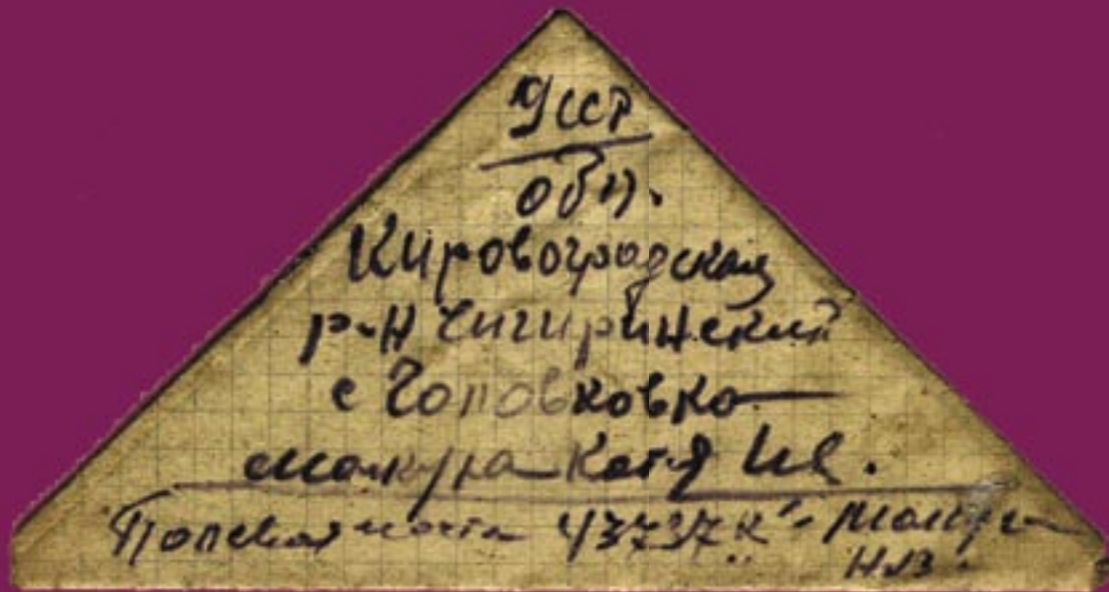 УССР
обл.
Кировоградская
р-н Чигиринский
с Головковка
мокура Катя Ив.
Полевая почта 43737 "К" Мокура
Н.В.